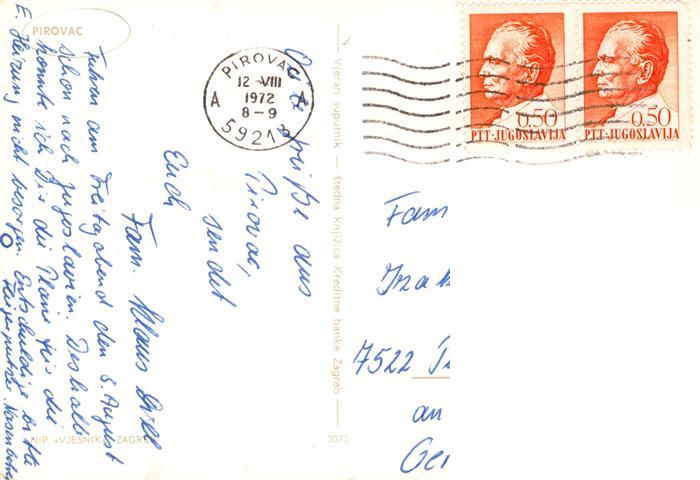 PIROVAC
PIROVAC
12-VIII
1972
8-9
A A
59213
0.50
PTT-JUGOSLAVIJA
0.50
PTT-JUGOSLAVIJA
Gute Grüße aus
Pirovac,
sendet
Euch
Fam. Klaus
Fuhren am Freitagabend den 5. August
schon nach Jugoslavien. Deshalb
konnte ich Dir die Pläne für die
E. Heizung nicht besorgen. Entschuldige bitte
Vjeran suputnik — štedna knjižica Kreditne banke Zagreb
Fam
7522
an
Ger
NIP «VJESNIK» ZAGREB
3073